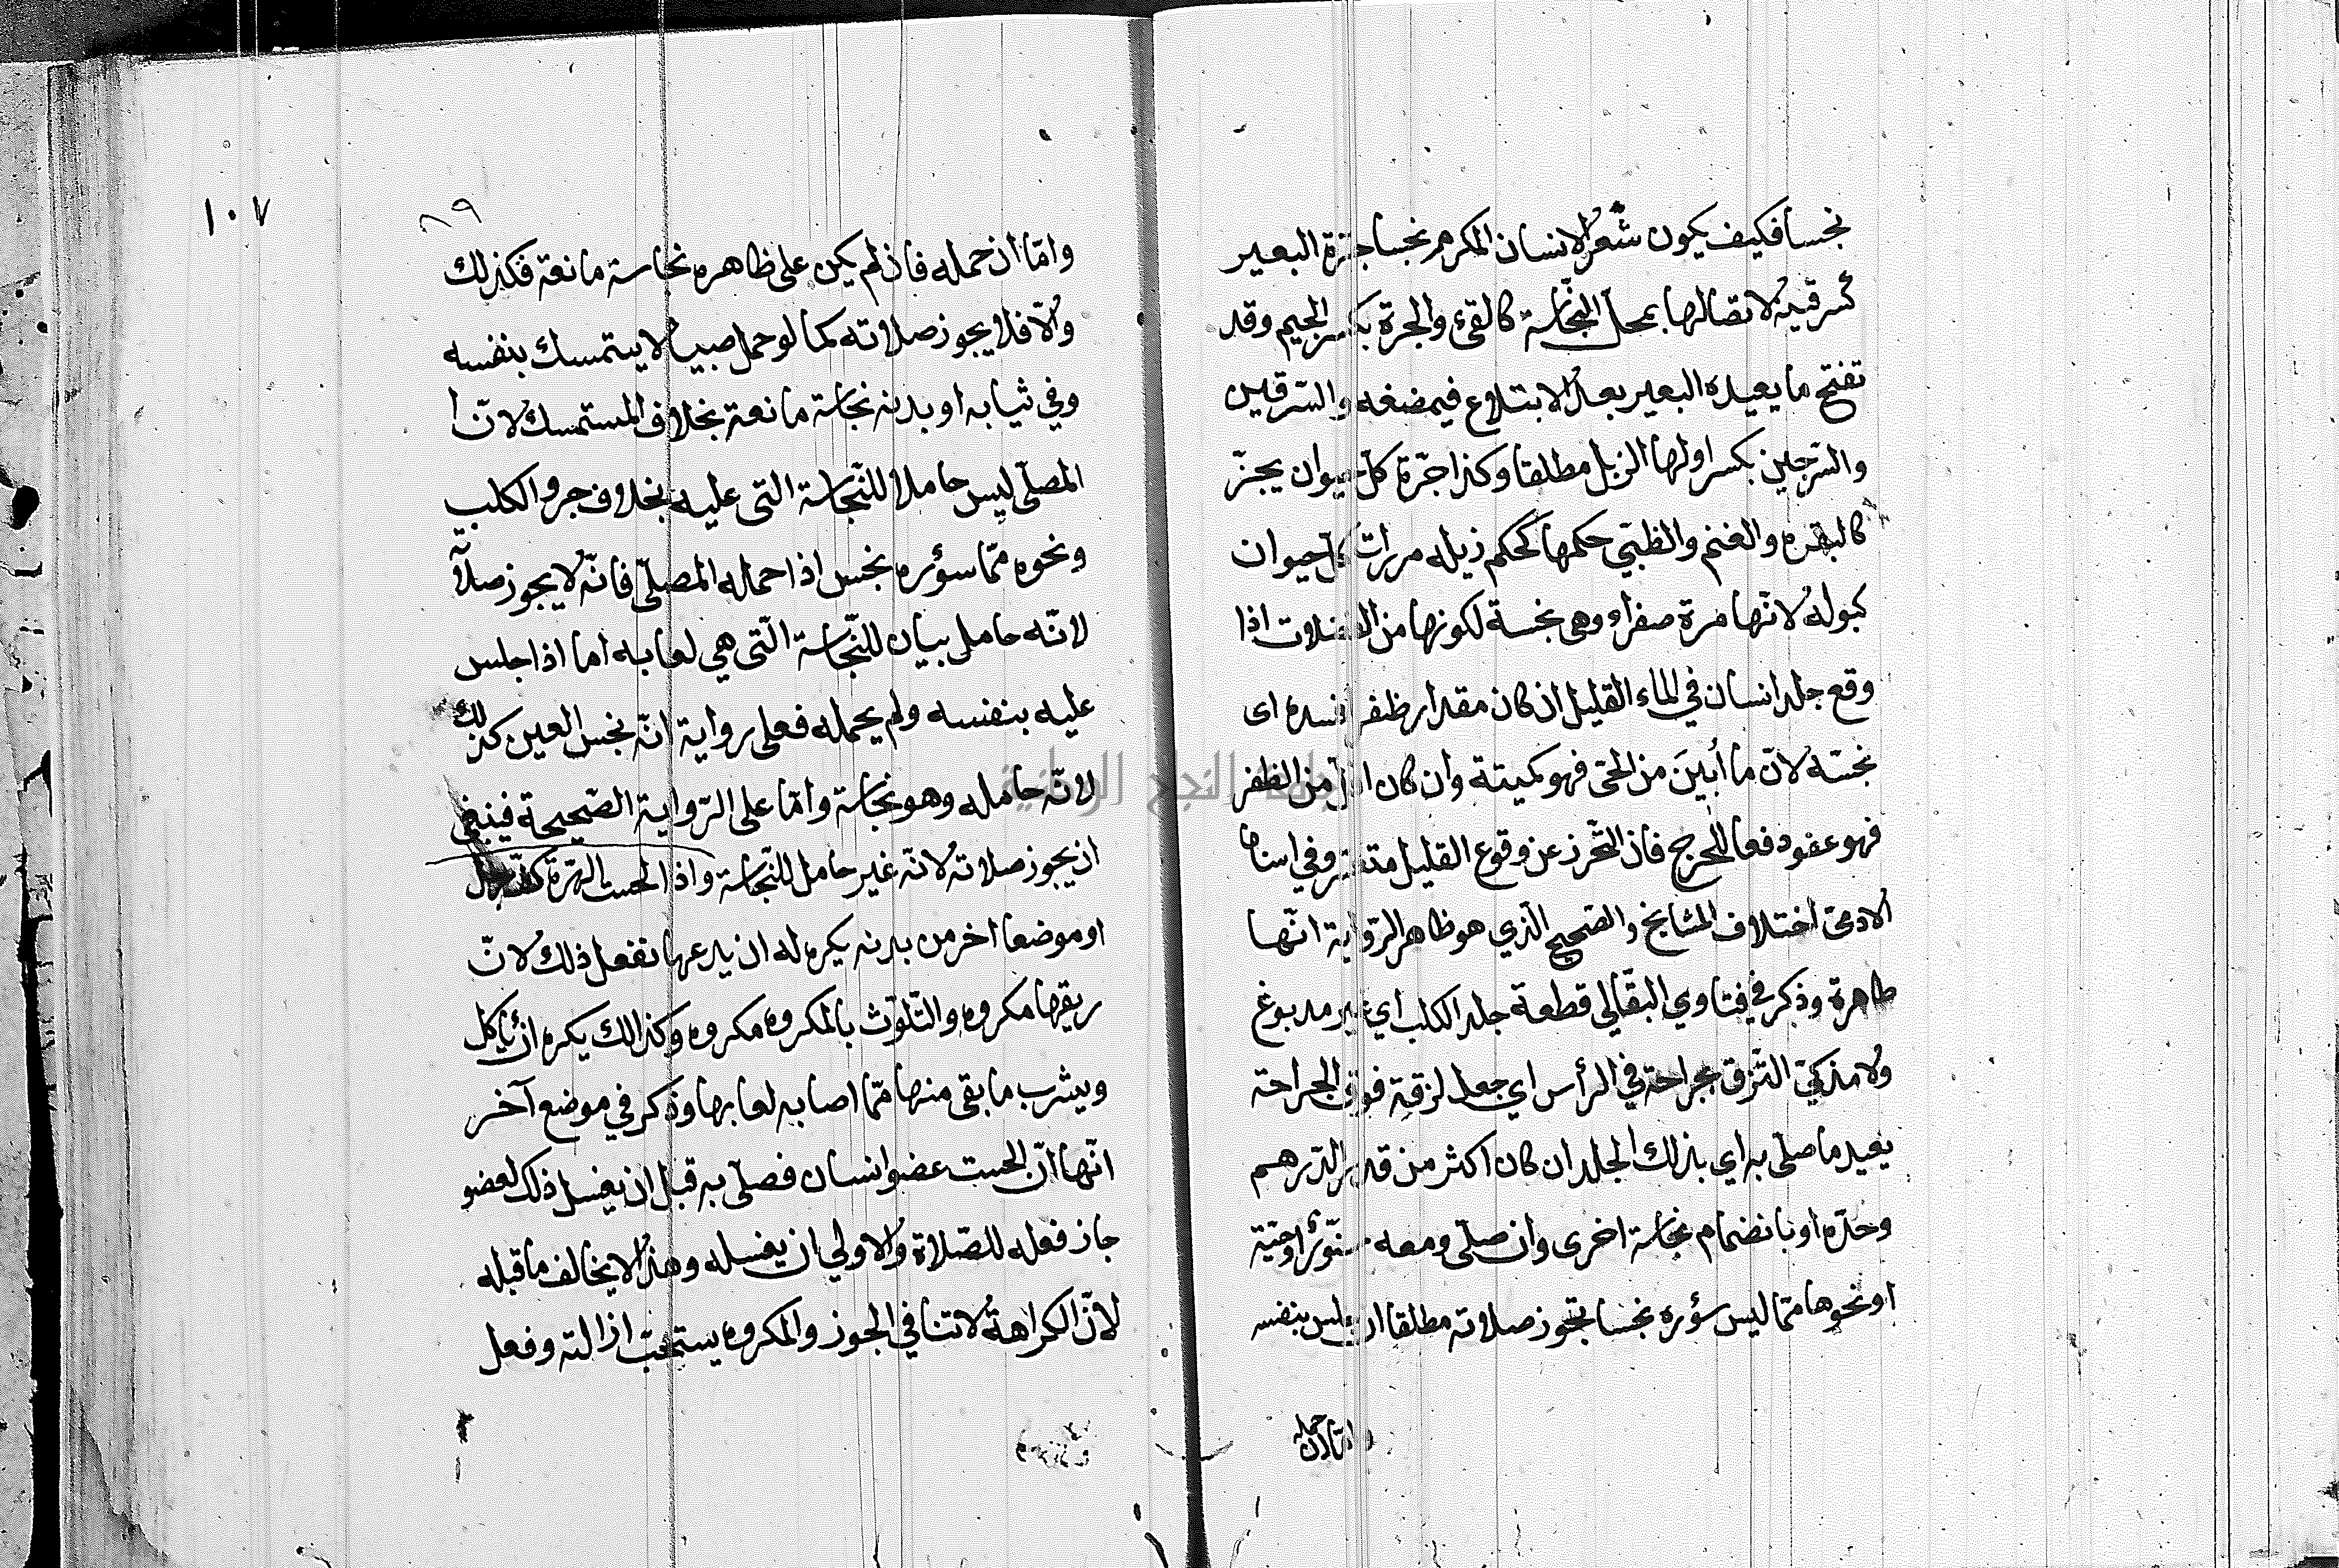 نجسا فكيف يكون شعر الانسان المكرم نجسا جرّة البعير
كسرقينه لاتصالها بمحل النّجاسة كالقئ والجرة بكسر الجيم وقد
تفتح ما يعيده البعير بعد الابتلاع فيمضغه والسّرقين
والسّرجين بكسر اولها الزبل مطلقا وكذا جرّة كل حيوان يجترّ
كالبقره والغنم والظبي حكمها كحكم ذيله مرارات كل حيوان
كبوله لانّها مرة صفراء وهى نجسة لكونها من الفضلات اذا
وقع جلد انسان في الماء القليل ان كان مقدار ظفر افسده اى
نجسّه لانّ ما أبينَ من الحيّ فهو كميتة وان كان اقل من الظفر
فهو عفو دفعا للحرج فان التّحرز عن وقوع القليل متعذر وفي اسنان
الادميّ اختلاف المشايخ والصّحيح الّذي هو ظاهر الرّواية انّها
طاهرة وذكر في فتاوي البقّالي قطعة جلد الكلب اي غير مدبوغ
ولا مذكيّ التّزق بجراحة في الرأس اي جعل لزقة فوق الجراحة
يعيد ما صلّى به اي بذلك الجلد ان كان اكثر من قدر الدّرهم
وحدّه او بانضمام نجاسة اخرى وان صلّى ومعه سنّور او حيّة
او نحوها ممّا ليس سؤره نجسا تجوز صلاته مطلقا ان جلس بنفسه
وامّا ان حمله
١٠٧
٨٩
وامّا ان حمله فاذ لم يكن على ظاهره نجاسة مانعة فكذلك
والّا فلا يجوز صلاته كما لو حمل صبيا لا يستمسك بنفسه
وفي ثيابه او بدنه نجاسة مانعة بخلاف المستمسك لانّ
المصلّى ليس حاملا للنّجاسة التى عليه بخلاف جرو الكلب
ونحوه ممّا سؤره نجس اذا حمله المصلّي فانّه لا يجوز صلاته
لانّه حامل بيان للنّجاسة الّتى هي لعابه اما اذا جلس
عليه بنفسه ولم يحمله فعلى رواية انّه نجس العين كذلك
لانّه حامله وهو نجاسة وامّا على الرّواية الصّحيحة فينبغي
ان يجوز صلاته لانّه غير حامل للنّجاسة واذا لحست الهرّة كف رجل
او موضعا اخر من بدنه يكره له ان يدعها تفعل ذلك لانّ
ريقها مكروه والتّلوّث بالمكروه مكروه وكذالك يكره ان يأكل
ويشرب ما بقى منها ممّا اصابه لعابها وذكر في موضع آخر
انّها ان لحست عضو انسان فصلّى به قبل ان يغسل ذلك لعضو
جاز فعله للصّلاة والاولي ان يغسله وهذا لا يخالف ما قبله
لانّ الكراهة لا تنافي الجوز والمكروه يستحبّ ازالته وفعل
جامعة النجاح الوطنية